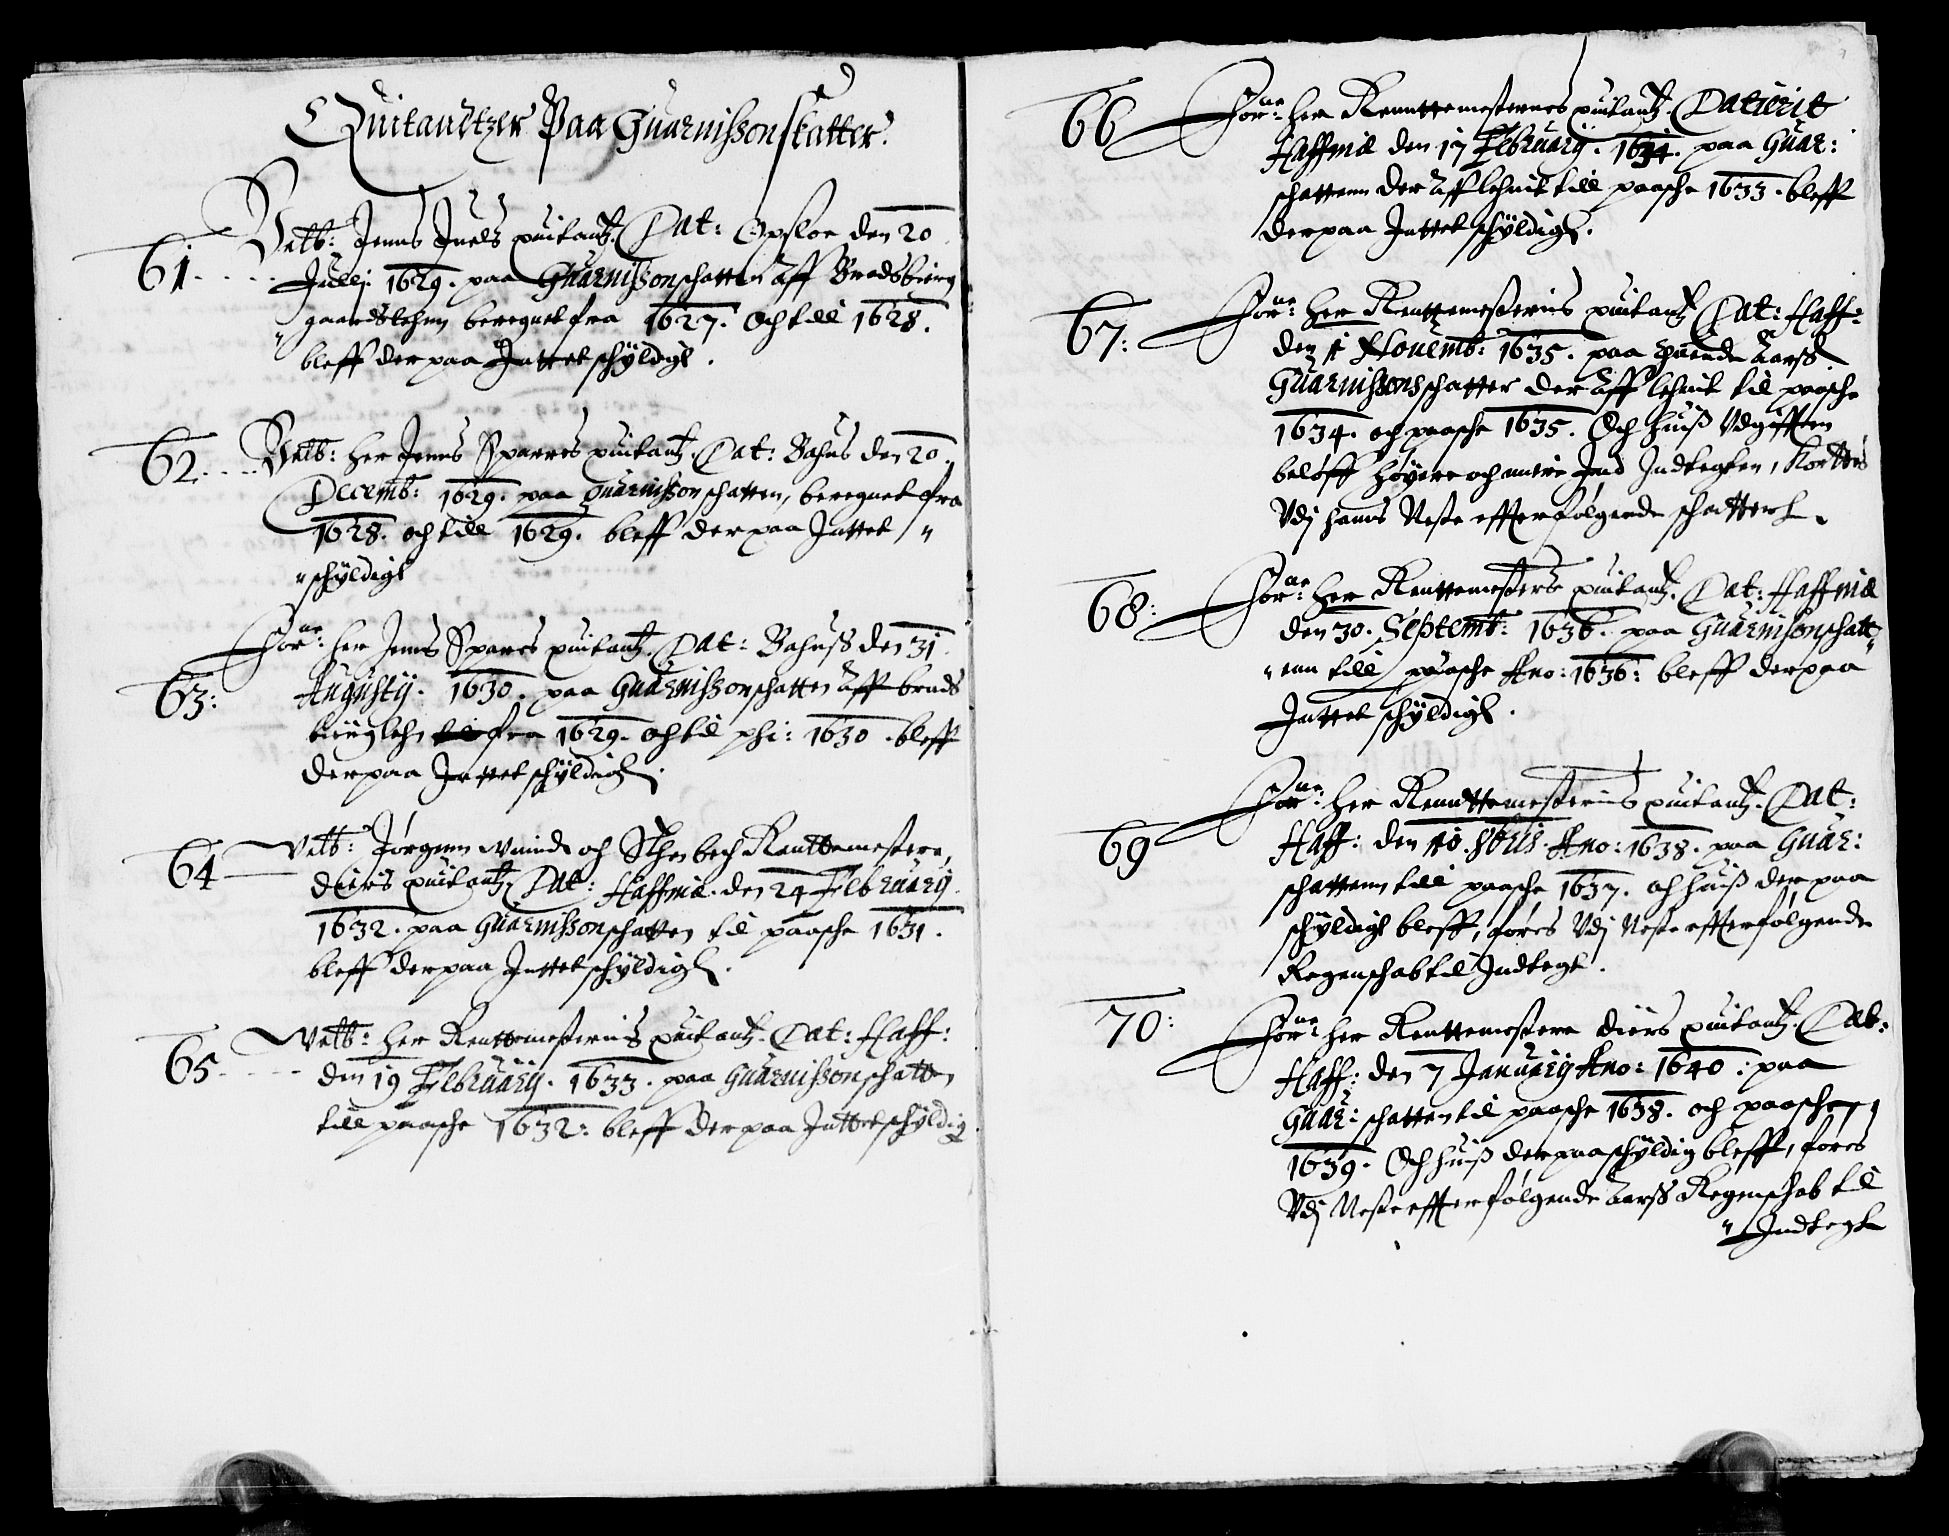 Quitantzer Paa Guarnisson skatter.
61. Velb: Jenns Juels quitantz. Dat: Opsloe den 20
Julij 1629. paa Guarnisson schatten aff Bradsbierg
gaardslehnn beregnet fra 1627. Och till 1628.
bleff derpaa Inttet schÿldigt.
62. Velb: her Jenns Sparres quitantz. Dat: Bahus den 20.
Decemb: 1629. paa guarnisson schatten, beregnet fra
1628. och till 1629. bleff der paa Inttet
schÿldigt
63: For:ne: her Jens Spares quitantz. Dat: Bahuss den 31
Augustij. 1630. paa Guarnisson schatten aff brads
biirg lehn fra 1629. och til phi: 1630. bleff
derpaa Inttet schÿldigt.
64 Velb: Jørgenn Wind och Sthen bech Renttemestere,
diers quitantz Dat: Haffniæ den 24 Februarij
1632. paa Guarnisson schatten til paasche 1631.
bleff derpaa Inttet schÿldigt.
65. Velb: her Renttemesternis quitantz. Dat: Haff:
den 19 Februarij. 1633. paa Guarnisson schatten
till paasche 1632: bleff derpaa Inttet schÿldig
66 For:ne: her Rennttemesternes quitantz. Datierit
Haffniæ den 17 Februarij. 1634. paa Guar:
schattenn der aff lehnit till paasche 1633. bleff
derpaa Inttet schÿldigt.
67: For:ne: her Renttemesternis quitantz Dat: Haff:
den Nouemb: 1635. paa thuende aarss
Guarnissons schatter der aff lehnit til paasche
1634. och paasche 1635. Och huiss Vdgifften
beløff høyere och mere end Indtegten, Korttes
Vdj hans Neste effterfølgende schatter.
68: For:ne: her Renttemesters quitantz. Dat: Haffniæ
den 30. Septemb: 1636. paa Guarnison schatt
enn till paasche Ano: 1636: bleff derpaa
Inttet schÿldigt.
69 For:ne: her Rennttemesternis quitantz. Dat:
Haff: den 10. 8bris. Ano: 1638. paa Guar:
schattenn till paasche 1637. och huiss der paa
schÿldigt bleff, føres Vdj Neste effterfølgende
Regenschab til Indtegt.
70: For:ne her Renttemestere diers quitantz. Dat:
Haff: den 7 Januarij Ano: 1640. paa
Guar: schatten til paasche 1638. och paasche
1639. Och huiss derpaa schÿldig bleff, føres
Vdj Neste effterfølgende aarss Regenschab til
Indtegt